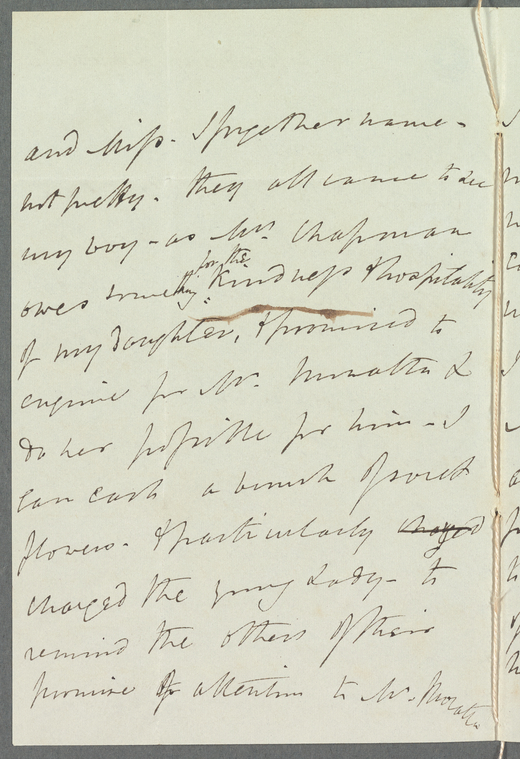 and Miss - I forget her name -
not pretty - they all came to see
my boy - as Mrs. Chapman
owes something for the Kindness & hospitality
of my daughter, & promised to
enquire for Mr. &
do her possible for him - I
gave each a bunch of sweet
flowers - & particularly charged
charged the young Lady - to
remind the others of their
promise of attention to Mr.